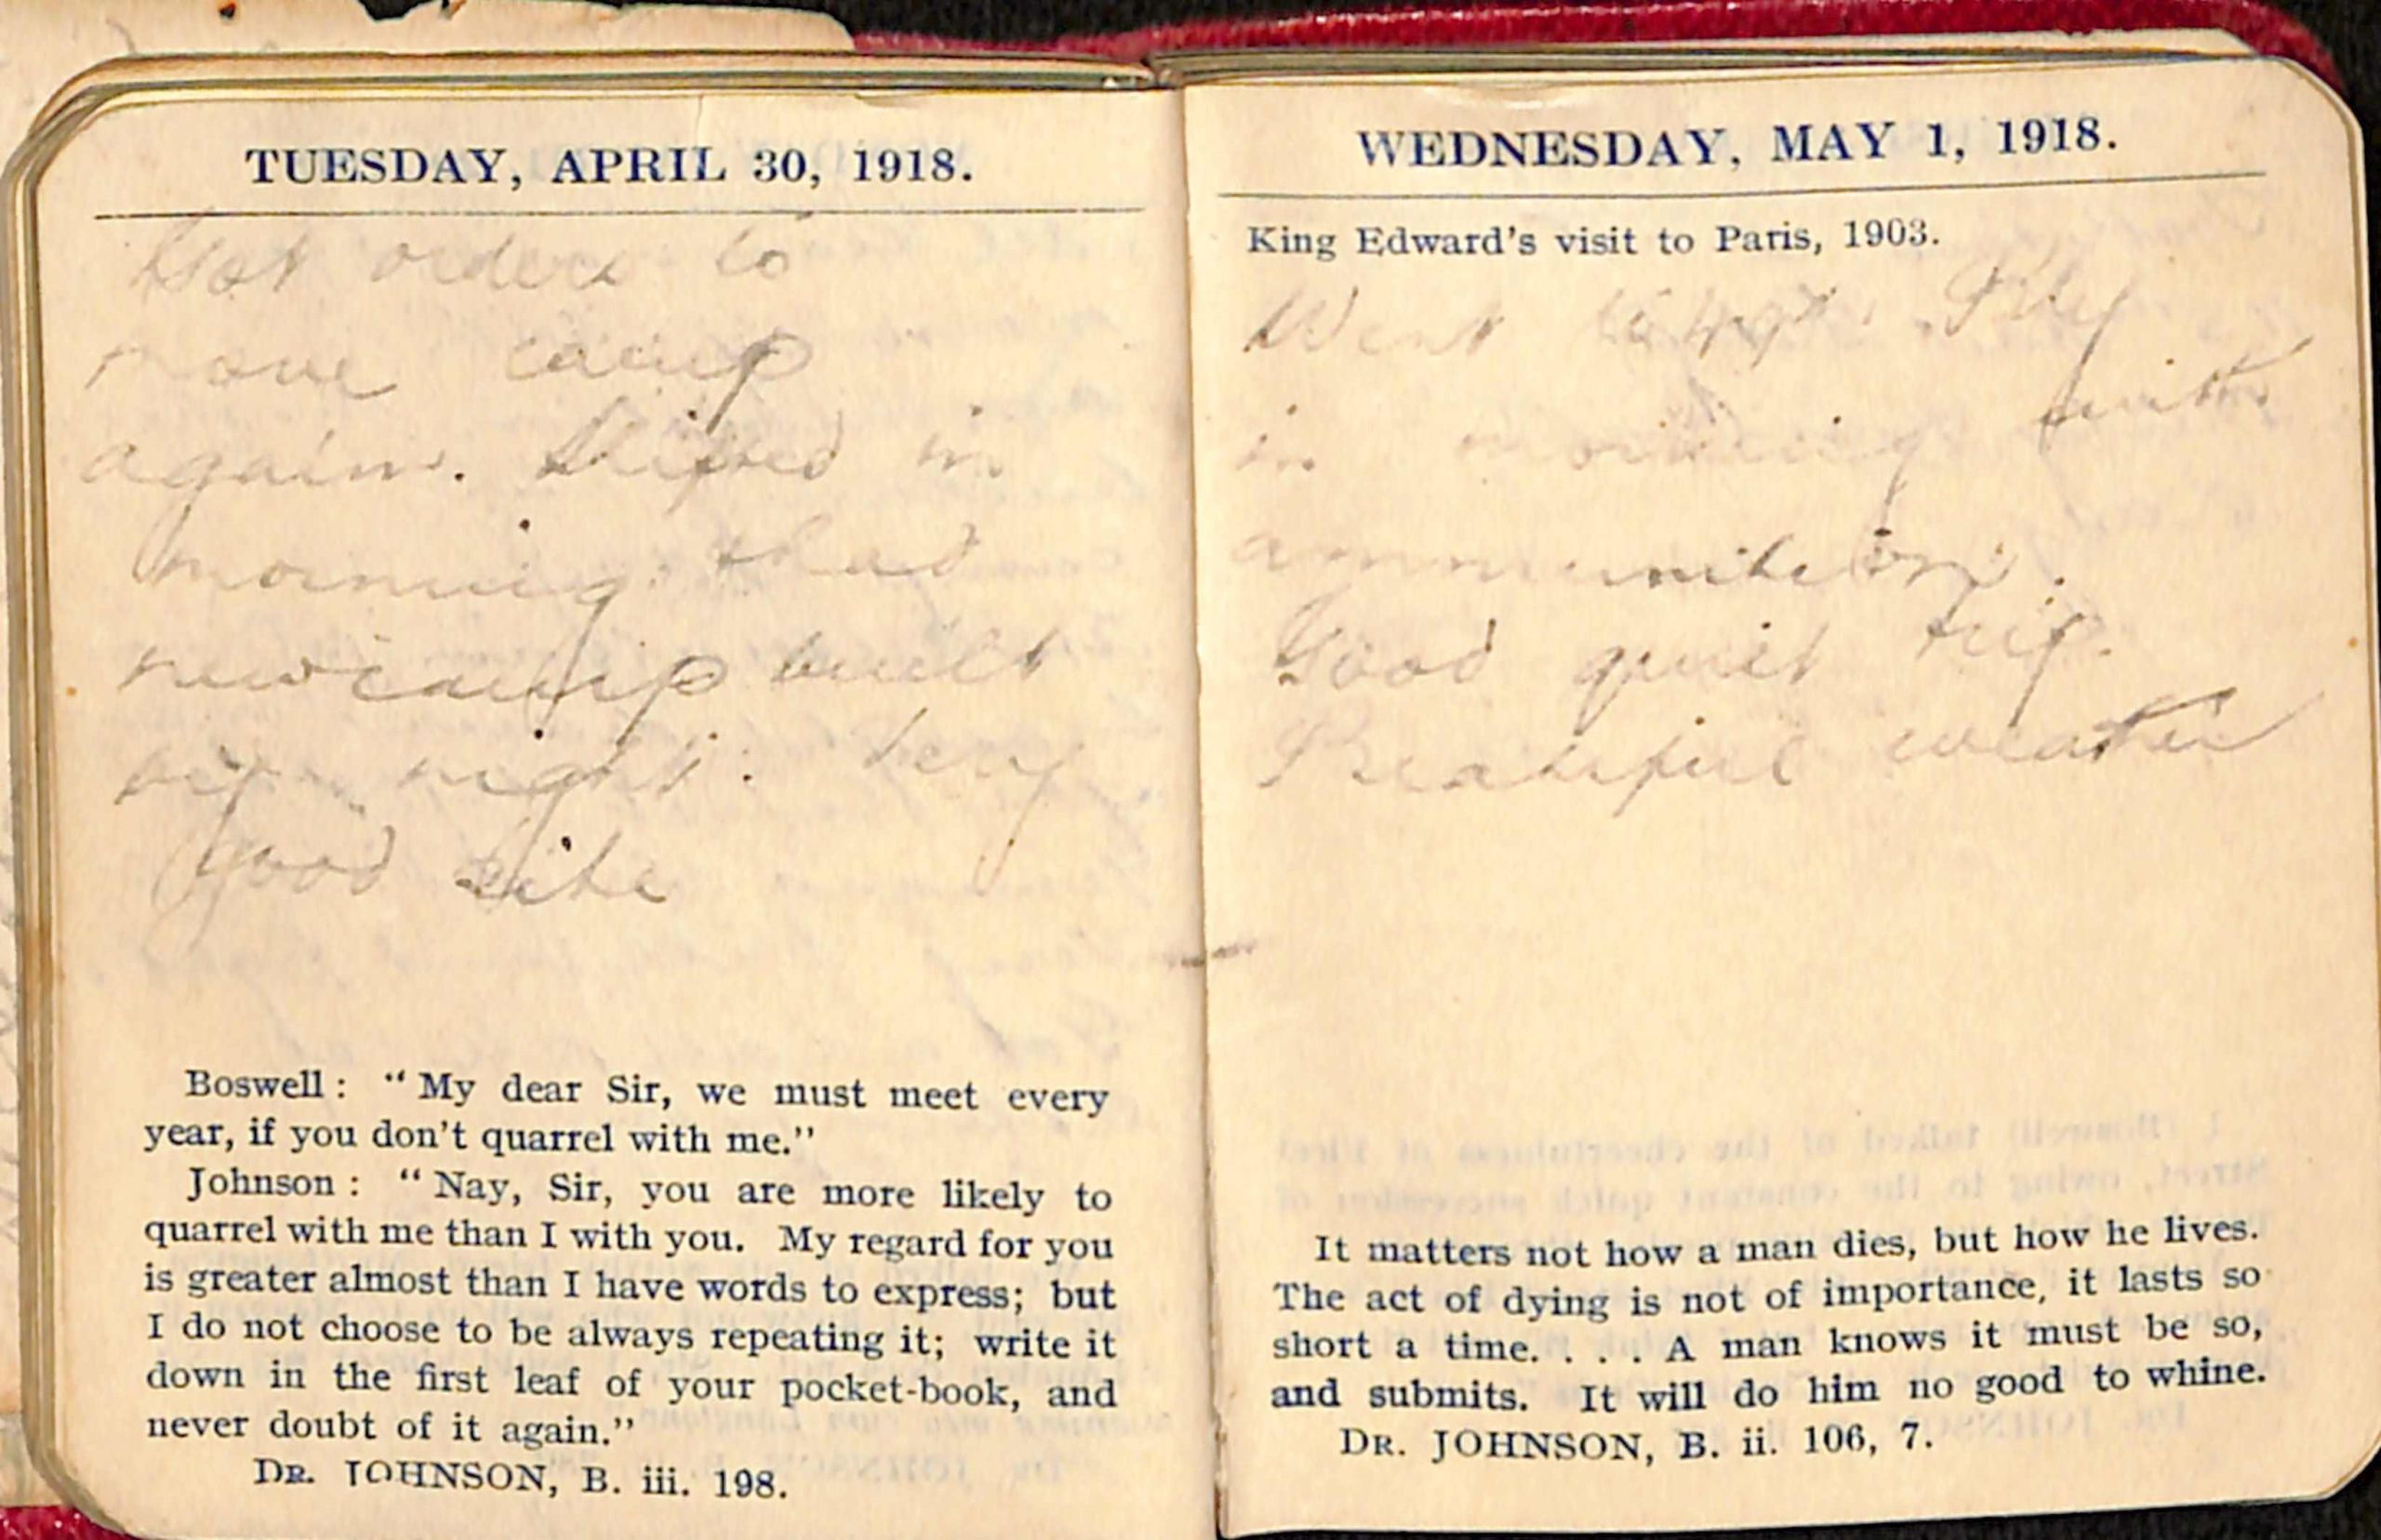 TUESDAY, APRIL 30, 1918.
Got orders to
move camp
again. Shifted in
morning & had
new camp built
by night. Very
good site
Boswell: "My dear Sir, we must meet every
year, if you don't quarrel with me."
Johnson: "Nay, Sir, you are more likely to
quarrel with me than I with you. My regard for you
is greater almost than I have words to express; but
I do not choose to be always repeating it; write it
down in the first leaf of your pocket-book, and
never doubt of it again."
DR. JOHNSON, B. iii. 198.
WEDNESDAY, MAY 1, 1918.
King Edward's visit to Paris, 1903.
Went to
in morning with
ammunition.
Good quiet trip.
Beautiful weather
It matters not how a man dies, but how he lives.
The act of dying is not of importance, it lasts so
short a time. . . . A man knows it must be so,
and submits. It will do him no good to whine.
DR. JOHNSON, B. ii. 106, 7.